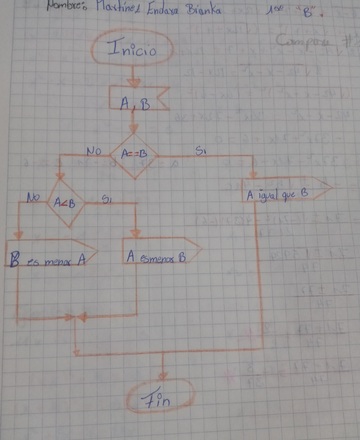 Nombre: Martinez Endara Bianka 1ero "B".
Inicio
A, B
No A==B Si
A igual que B
No A<B Si
B es menor A
A es menor B
Fin